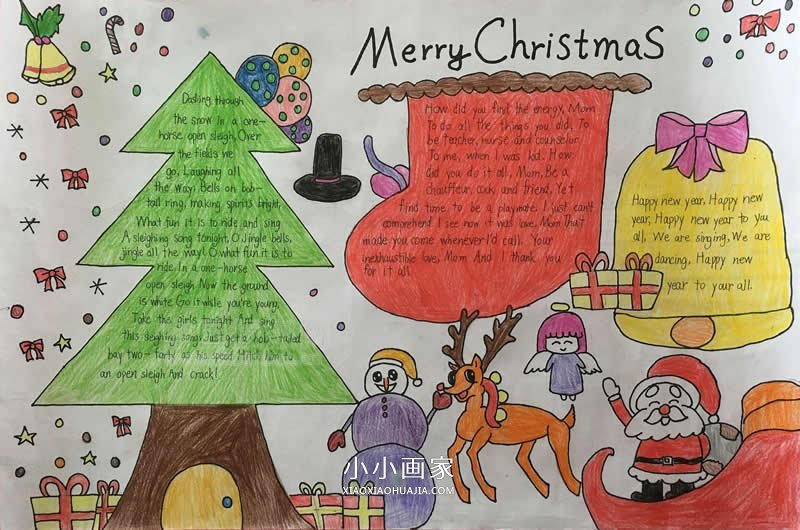 Merry Christmas
Dashing through
the snow in a one-
horse, open sleigh, Over
the fields we
go, Laughing all
the way; Bells on bob-
tail ring, making spirits bright,
What fun it is to ride and sing
A sleighing song tonight, O Jingle bells,
jingle all the way! O what fun it is to
ride In a one-horse
open sleigh Now the ground
is white Go it while you're young,
Take the girls tonight And sing
this sleighing song; Just get a bob-tailed
bay two- forty as his speed Hitch him to
an open sleigh And crack!
How did you find the energy, Mom
To do all the things you did, To
be teacher, nurse and counselor
To me, when I was kid. How
did you do it all, Mom, Be a
chauffeur, cook and friend, Yet
find time to be a playmate, I just can't
comprehend. I see now it was love, Mom That
made you come whenever I'd call. Your
inexhaustible love, Mom And I thank you
for it all
Happy new year, Happy new
year, Happy new year to you
all, We are singing, We are
dancing, Happy new
year to your all.
小小画家
XIAOXIAOHUAJIA.COM